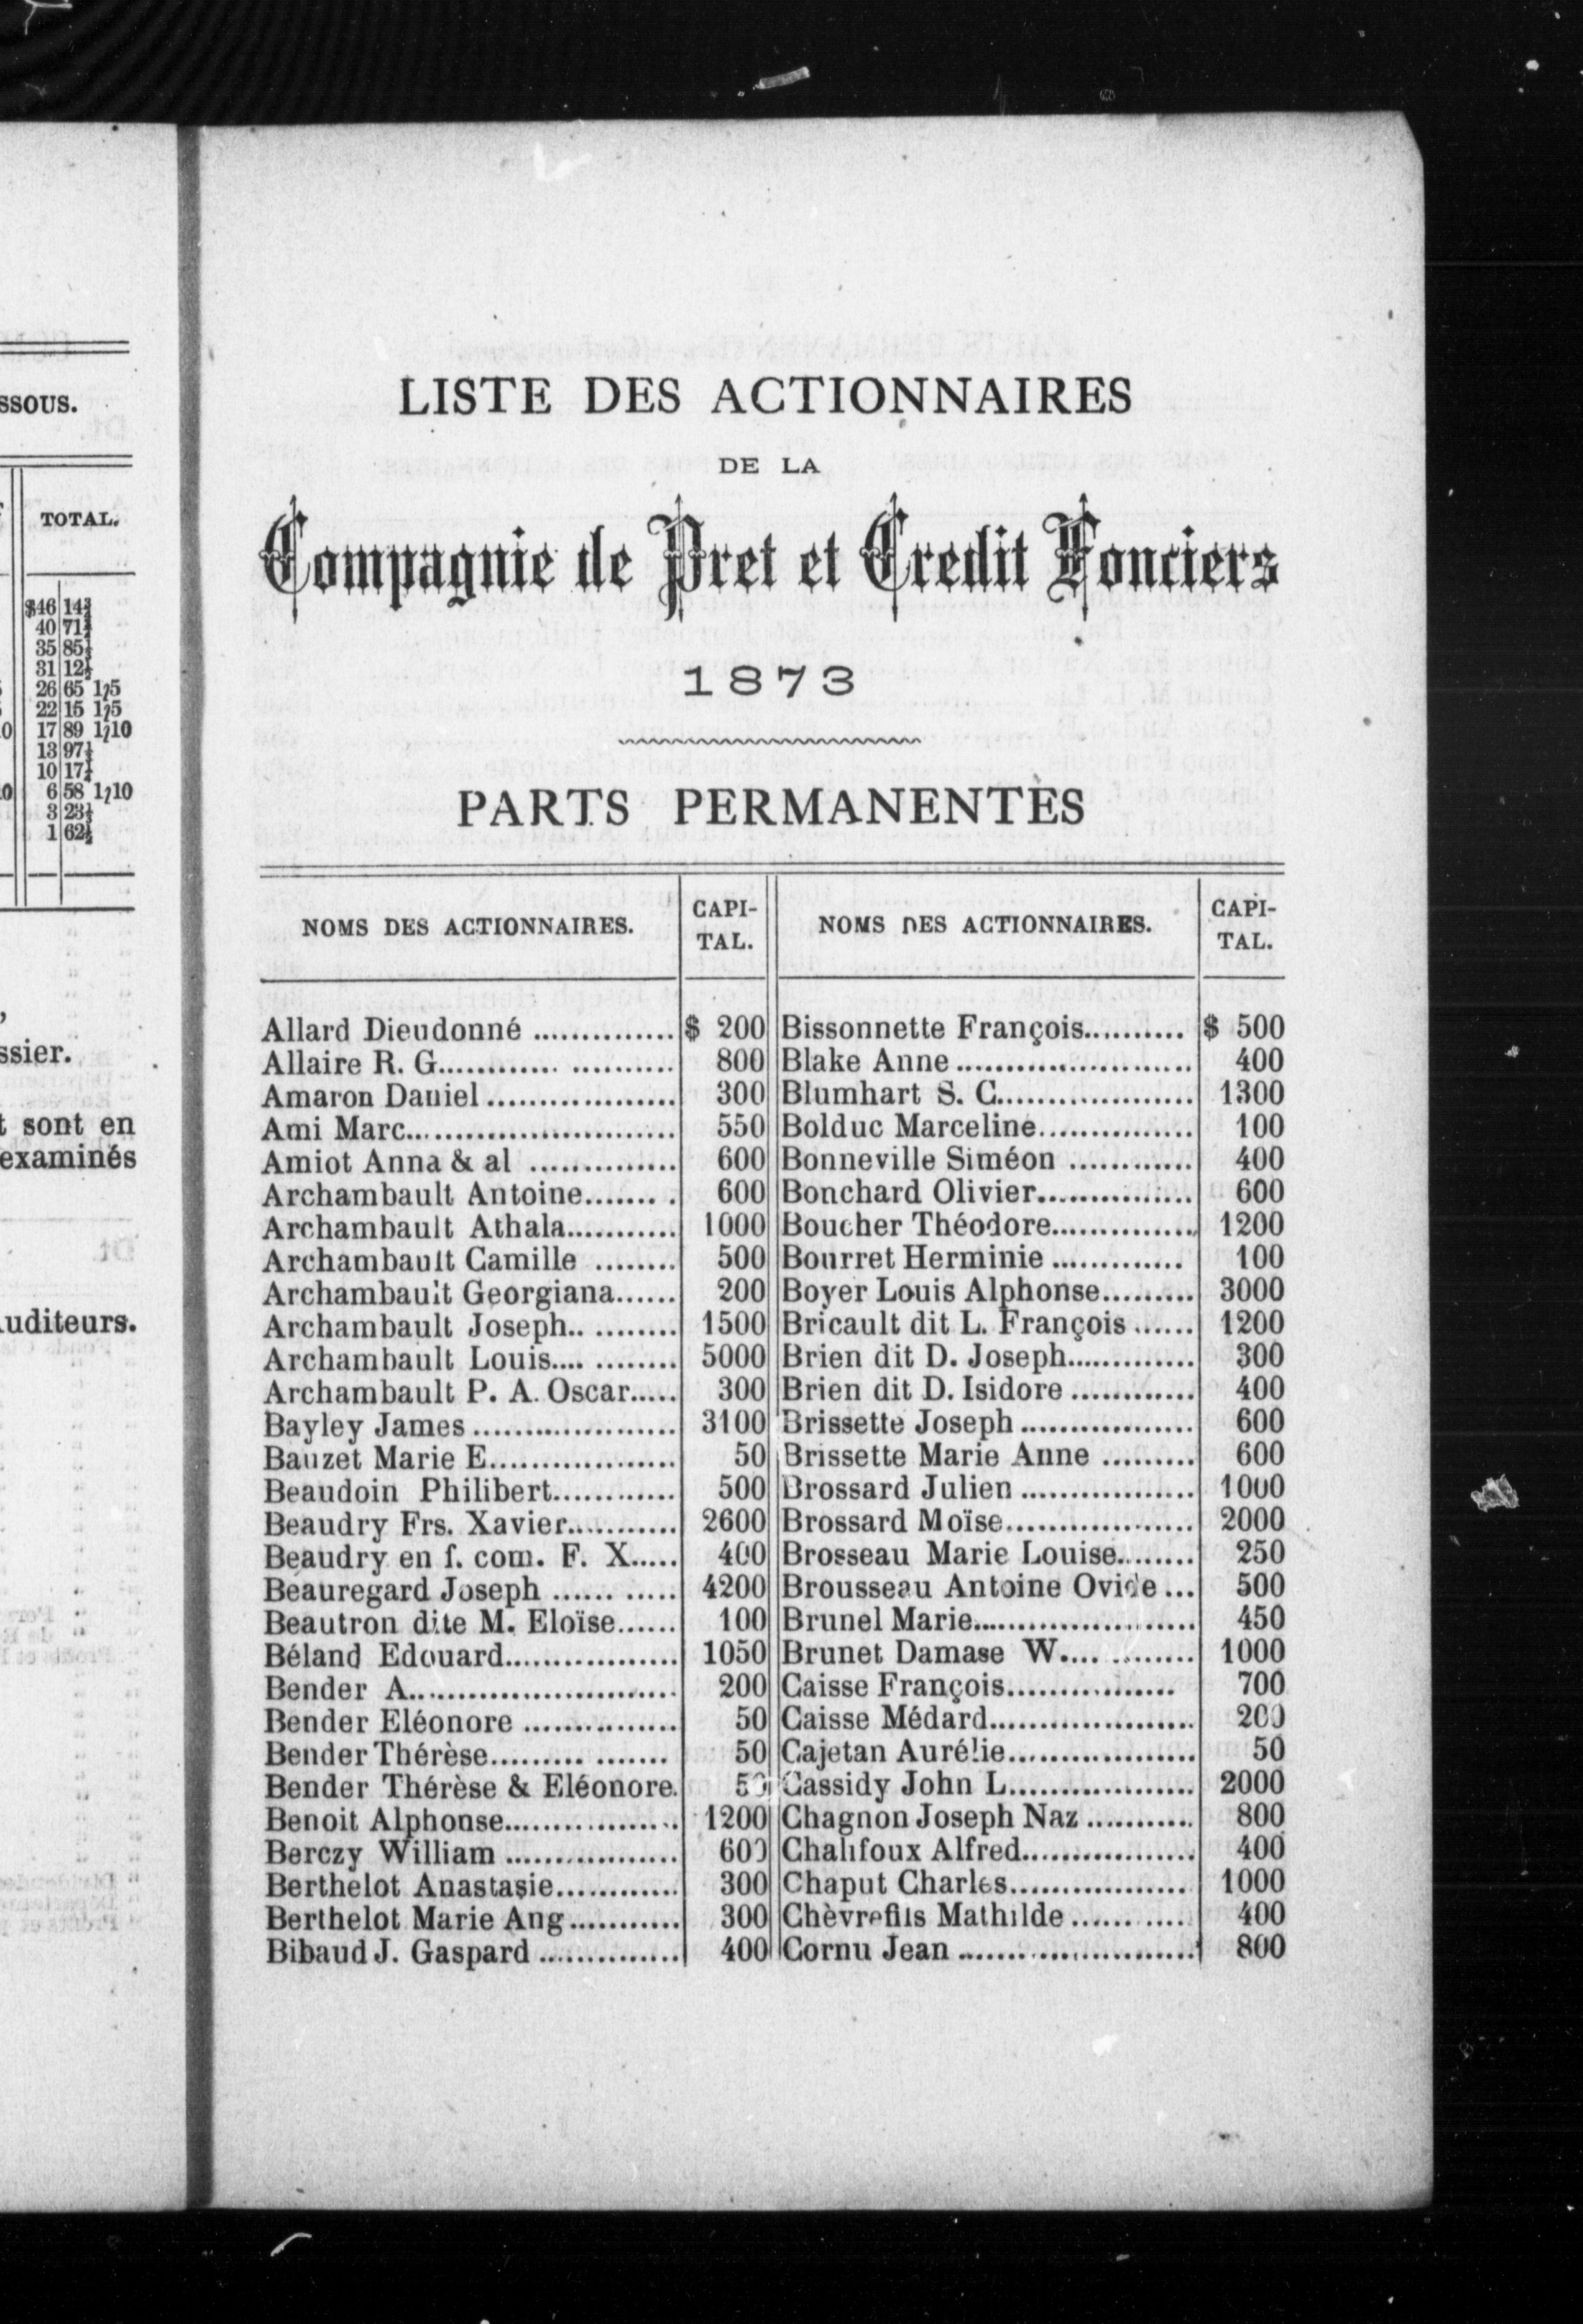 SSOUS.
TOTAL.
$46 14¾
40 71¾
35 85½
31 12½
26 65 1/5
22 15 1/5
17 89 1/10
13 97½
10 17½
6 58 1/10
3 23½
1 62½
ssier.
t sont en
examinés
uditeurs.
LISTE DES ACTIONNAIRES
DE LA
Compagnie de Pret et Credit Fonciers
1873
PARTS PERMANENTES
NOMS DES ACTIONNAIRES. CAPI-TAL. NOMS DES ACTIONNAIRES. CAPI-TAL.
Allard Dieudonné .............. $ 200 Bissonnette François.......... $ 500
Allaire R. G............. .......... 800 Blake Anne ........................ 400
Amaron Daniel ................... 300 Blumhart S. C.................... 1300
Ami Marc........................... 550 Bolduc Marceline................ 100
Amiot Anna & al ............... 600 Bonneville Siméon ............. 400
Archambault Antoine....... . 600 Bonchard Olivier................ 600
Archambault Athala........... 1000 Boucher Théodore............... 1200
Archambault Camille ........ 500 Bourret Herminie ............. 100
Archambault Georgiana...... 200 Boyer Louis Alphonse......... 3000
Archambault Joseph.. ......... 1500 Bricault dit L. François ...... 1200
Archambault Louis.... ......... 5000 Brien dit D. Joseph............. 300
Archambault P. A. Oscar..... 300 Brien dit D. Isidore ............ 400
Bayley James .................... 3100 Brissette Joseph ................. 600
Bauzet Marie E................... 50 Brissette Marie Anne ......... 600
Beaudoin Philibert............ 500 Brossard Julien ................. 1000
Beaudry Frs. Xavier........... 2600 Brossard Moïse................... 2000
Beaudry en f. com. F. X..... 400 Brosseau Marie Louise........ 250
Beauregard Joseph ...... ..... 4200 Brousseau Antoine Ovide ... 500
Beautron dite M. Eloïse...... 100 Brunel Marie...................... 450
Béland Edouard................. 1050 Brunet Damase W.... ......... 1000
Bender A.......................... 200 Caisse François................. 700
Bender Eléonore ............... 50 Caisse Médard.................... 200
Bender Thérèse......... ....... 50 Cajetan Aurélie................... 50
Bender Thérèse & Eléonore. 50 Cassidy John L................... 2000
Benoit Alphonse................. 1200 Chagnon Joseph Naz ........... 800
Berczy William ................. 600 Chalifoux Alfred................. 400
Berthelot Anastasie............ 300 Chaput Charles.................. 1000
Berthelot Marie Ang........... 300 Chèvrefils Mathilde ........... 400
Bibaud J. Gaspard .............. 400 Cornu Jean ........................ 800